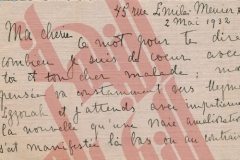 45 rue Emile Menier
2 Mai 1932
Ma chère ce mot pour te dire
combien je suis de cœur avec
toi et ton cher malade: ma
pensée va constamment vers
et j'attends avec impatience
la nouvelle qu'une vraie amélioration
s'est manifestée là bas ou au contraire